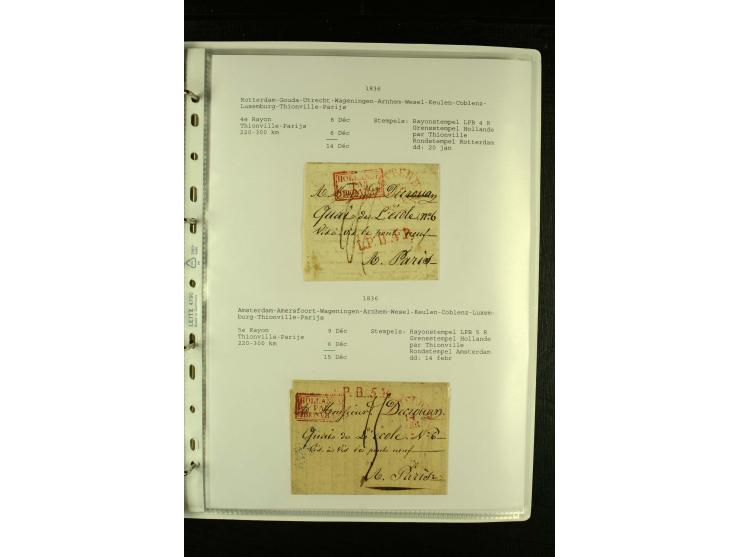 1836
Rotterdam-Gouda-Utrecht-Wageningen-Arnhem-Wesel-Keulen-Coblenz-
Luxemburg-Thionville-Parijs
4e Rayon 8 Déc Stempels: Rayonstempel LPB 4 R
Thionville-Parijs 6 Déc Grensstempel Hollande
220-300 km par Thionville
14 Déc Rondstempel Rotterdam
dd: 20 jan
HOLLANDE
PAR
A Monsieur Decrouan
Quai de L'école n° 6
Vis à vis le pont neuf
L.P.B.4.R.
A. Paris
1836
Amsterdam-Amersfoort-Wageningen-Arnhem-Wesel-Keulen-Coblenz-Luxem-
burg-Thionville-Parijs
5e Rayon 9 Déc Stempels: Rayonstempel LPB 5 R
Thionville-Parijs 6 Déc Grensstempel Hollande
220-300 km par Thionville
15 Déc Rondstempel Amsterdam
dd: 14 febr
P.B.5.
HOLLANDE
PAR
Monsieur Decrouan
Quai de L'école N° 6
Vis à Vis le pont neuf
A. Paris
LEITZ 4790